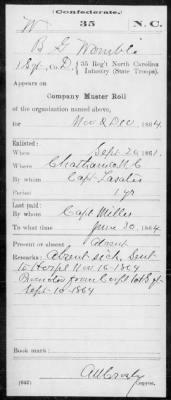 (Confederate.)
W 35 N.C.
B G Womble
1 Sgt, Co. D, 35 Reg't North Carolina
Infantry (State Troops).
Appears on
Company Muster Roll
of the organization named above,
for Nov & Dec, 1864.
Enlisted:
When Sept 20, 1861.
Where Chatham N C
By whom Capt Lasater
Period 1 yr
Last paid:
By whom Capt Miller
To what time June 30, 1864.
Present or absent Absent
Remarks: Absent sick, Sent
to Hospl Nov 10 1864
Promoted from Corpl to 1 Sgt
Sept 10 1864
Book mark:
(642) Copyist.